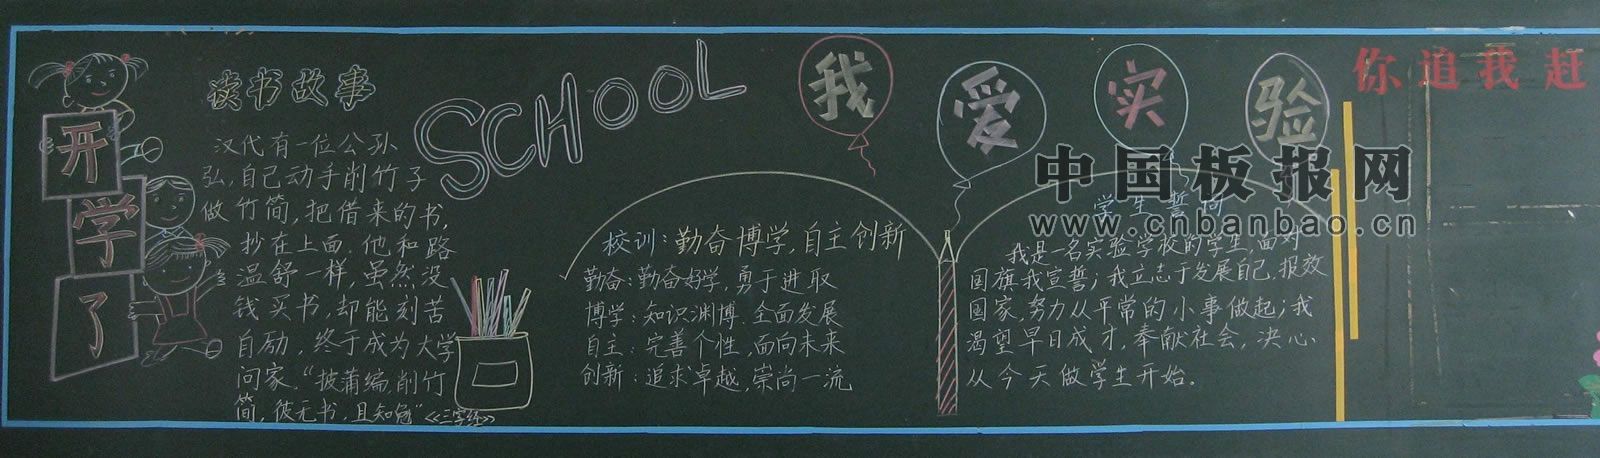 开
学
了
读书故事
汉代有一位公孙
弘,自己动手削竹子
做竹简,把借来的书,
抄在上面.他和路
温舒一样,虽然没
钱买书,却能刻苦
自励,终于成为大学
问家.“披蒲编,削竹
简,彼无书,且知勉”《三字经》
SCHOOL
我
爱
实
验
校训:勤奋博学,自主创新
勤奋:勤奋好学,勇于进取
博学:知识渊博.全面发展
自主:完善个性,面向未来
创新:追求卓越,崇尚一流
中国板报网
www.cnbanbao.cn
学生誓词
我是一名实验学校的学生,面对
国旗我宣誓;我立志于发展自己.报效
国家,努力从平常的小事做起;我
渴望早日成才,奉献社会,决心
从今天做学生开始.
你追我赶